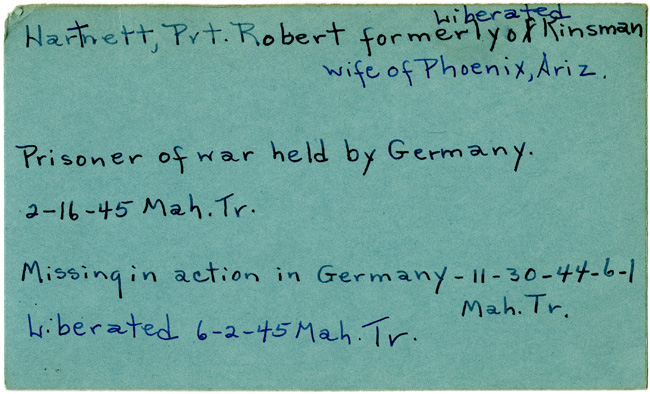 Liberated
Hartnett, Pvt. Robert formerly of Kinsman
wife of Phoenix, Ariz.
Prisoner of war held by Germany.
2-16-45 Mah. Tr.
Missing in action in Germany - 11-30-44-6-1
Mah. Tr.
Liberated 6-2-45 Mah. Tr.